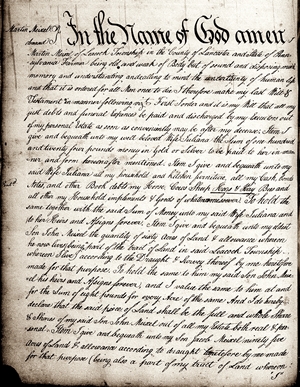 Martin Meixel's In the Name of God amen
Martin Meixel of Leacock Township in the County of Lancaster and State of Penn
sylvania Yeoman being old and weak of Body but of sound and disposing mind
memory and understanding and calling to mind the uncertainty of human life
and that it is ordered for all Men once to die I therefore make my last Will &
Testament in manner following viz First I order and it is my Will that all my
just debts and funeral expences be paid and discharged by my Executors out
of my personal Estate as soon as conveniently may be after my decease. Item I
give and bequeath unto my well beloved Wife Juliana the Sum of one hundred
and twenty five pounds money in Gold or Silver to be paid to her in man
ner and form hereafter mentioned. Item I give and bequeath unto my
said Wife Juliana all my household and Kitchen furniture, all my Cash, Bonds
Notes, and other Book debts my Horse, Cows Sheep Hogs & Hay Bees and
all other my Household impliments & Goods of whatsoever To hold the
same together with the said Sum of Money unto my said Wife Juliana and
to her Heirs and Assigns forever. Item I give and bequeath unto my eldest
Son John Meixel the quantity of sixty Acres of Land & allowance whereon
he now lives (being part of the tract of land in said Leacock Township
whereon I live) according to the Draught & Survey thereof by me heretofore
made for that purpose. To hold the same to him my said Son John Meixel
his heirs and Assigns forever; and I value the same to him at and
for the Sum of eight pounds for every Acre of the same. And I do hereby
declare that the said piece of Land shall be the full and whole Share
& Shares of my said Son John Meixel out of all my Estate both real & per
sonal. Item I give and bequeath unto my Son Jacob Meixel ninety five
Acres of Land & allowance according to draught heretofore by me made
for that purpose (being also a part of my tract of Land whereon